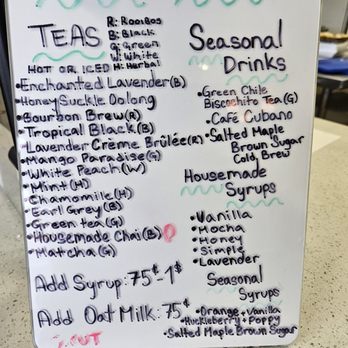 TEAS
R: Rooibos
B: Black
G: Green
W: White
H: Herbal
HOT OR ICED
•Enchanted Lavender(B)
•Honeysuckle Oolong
•Bourbon Brew(R)
•Tropical Black(B)
•Lavender Crème Brûlée(R)
•Mango Paradise(G)
•White Peach(W)
•Mint(H)
•Chamomile(H)
•Earl Grey(B)
•Green tea(G)
•Housemade Chai(B)
•Matcha(G)
Add Syrup: 75¢-1$
Add Oat Milk: 75¢
OUT
Seasonal
Drinks
•Green Chile
Biscochito Tea(G)
•Café Cubano
•Salted Maple
Brown Sugar
Cold Brew
Housemade
Syrups
•Vanilla
•Mocha
•Honey
•Simple
•Lavender
Seasonal
Syrups
•Orange + Vanilla
•Huckleberry + Poppy
•Salted Maple Brown Sugar